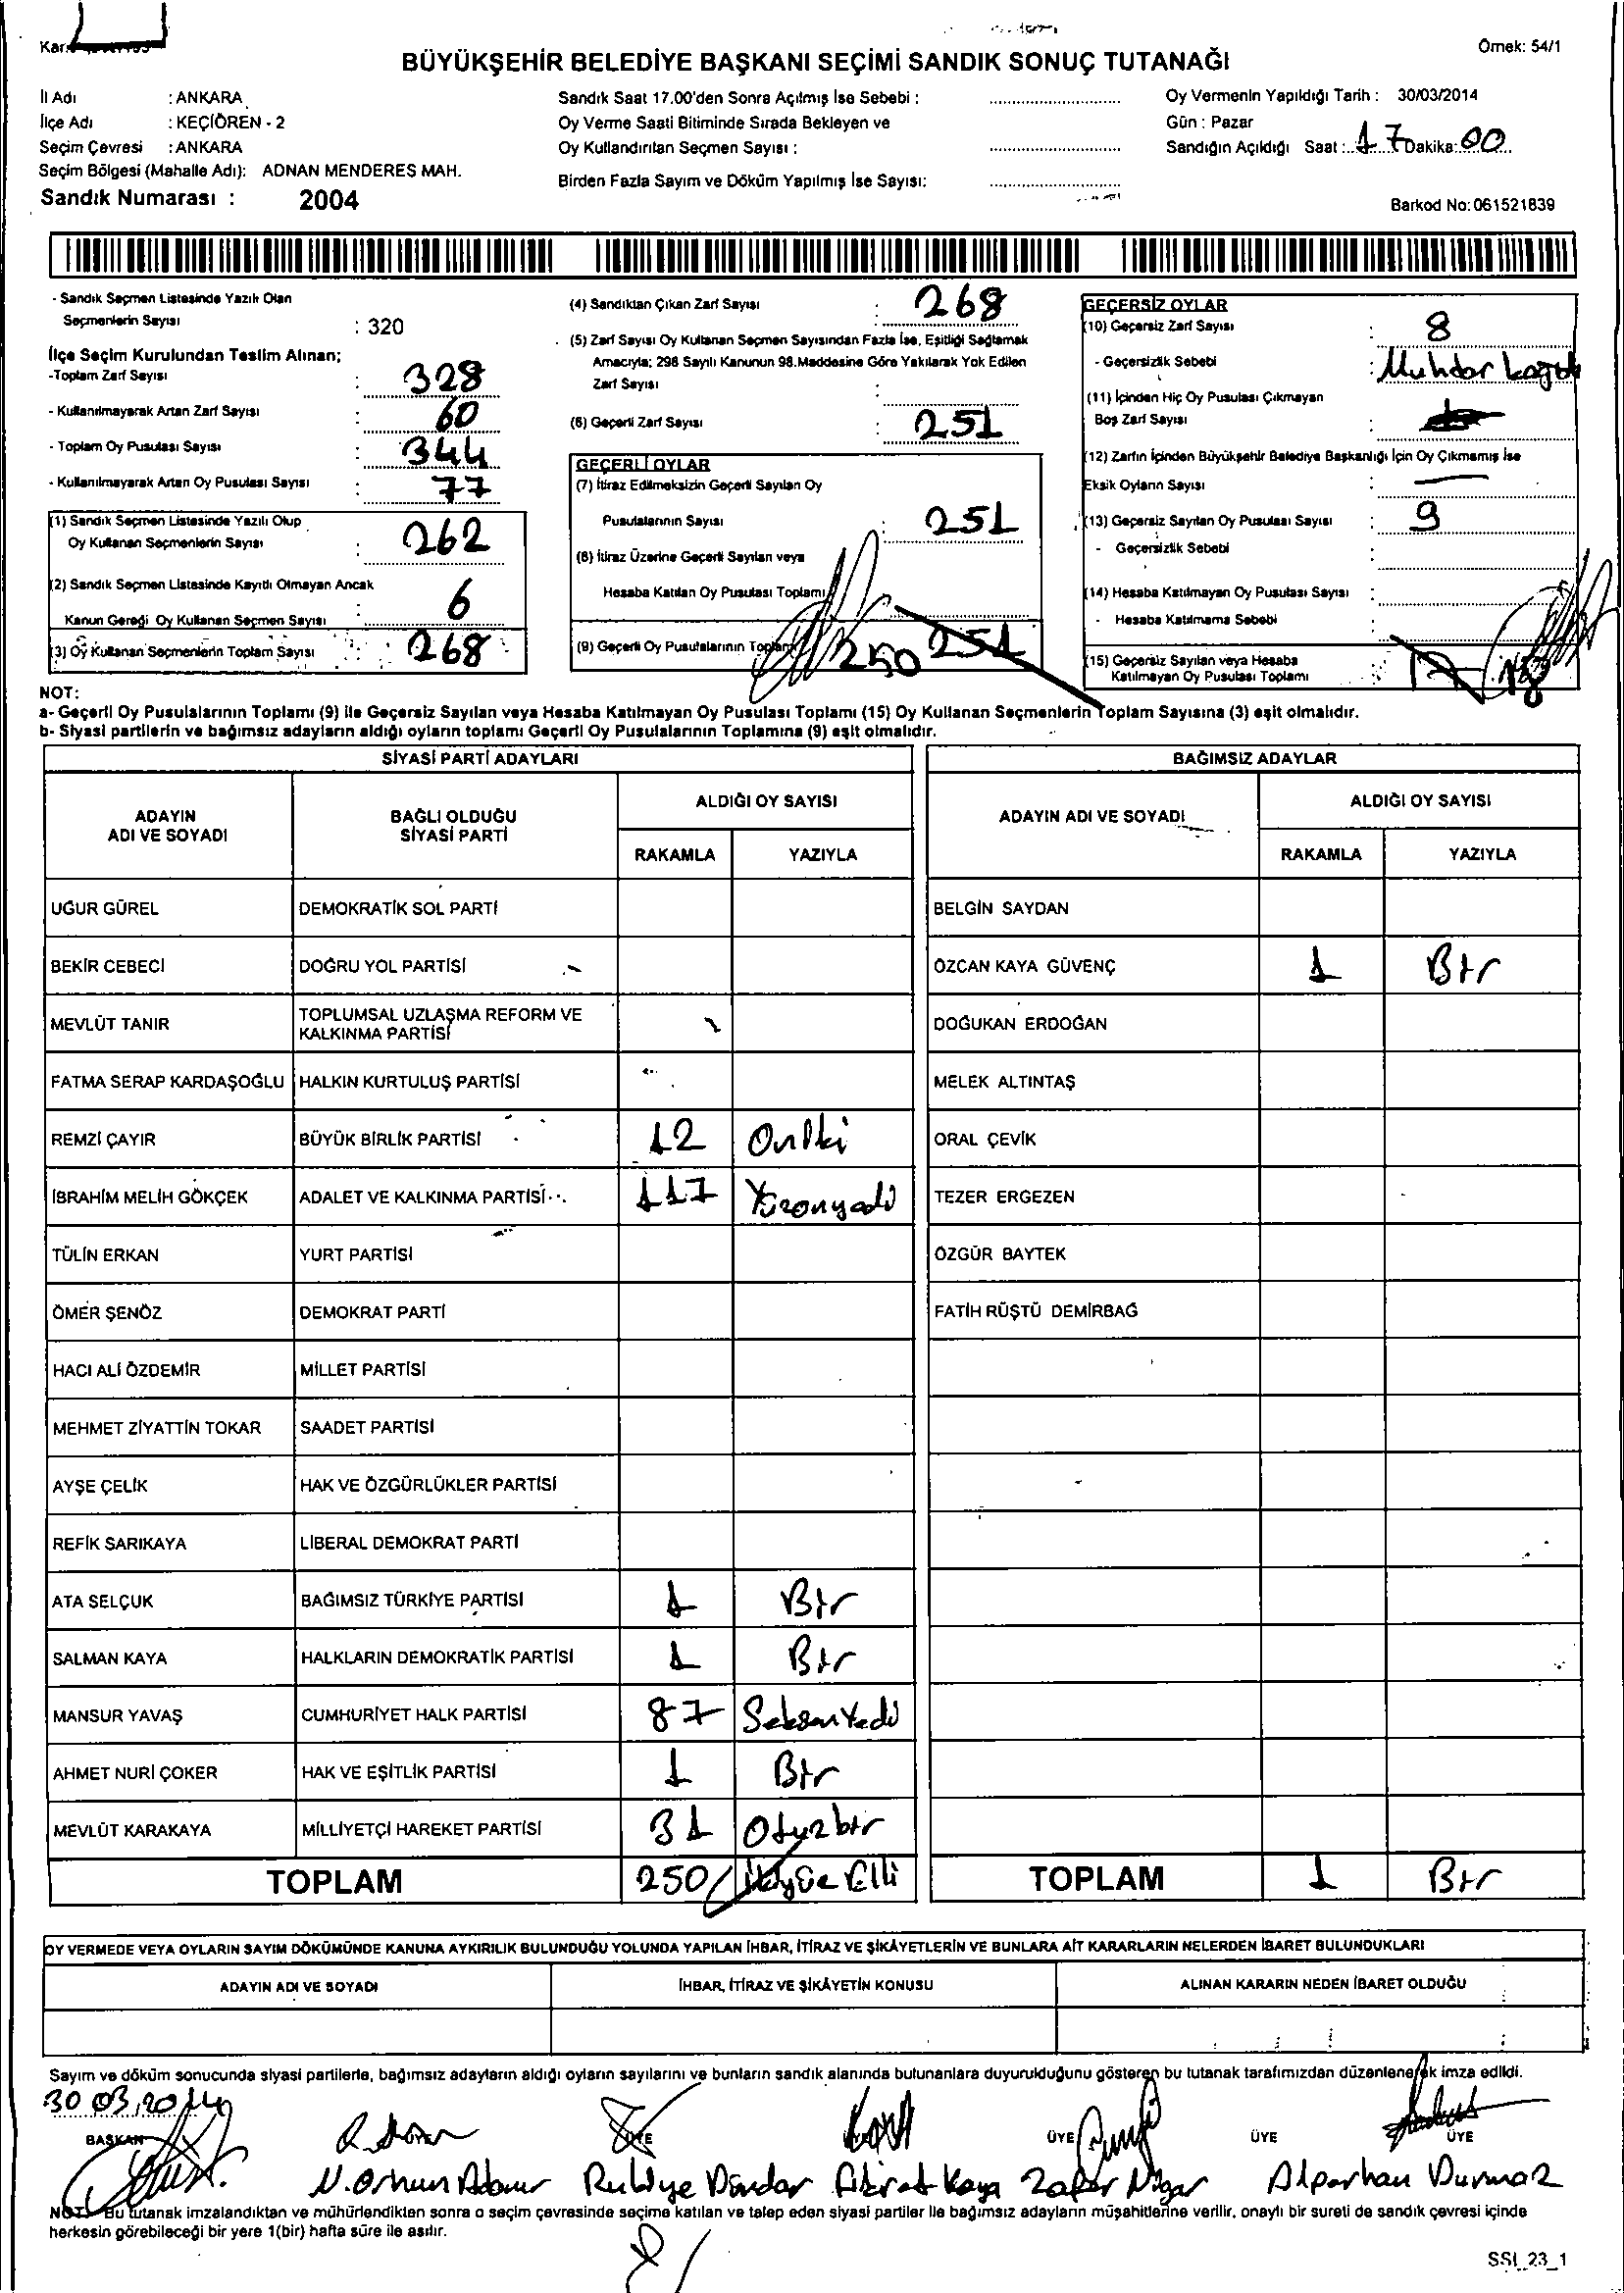 Örnek: 54/1
BÜYÜKŞEHİR BELEDİYE BAŞKANI SEÇİMİ SANDIK SONUÇ TUTANAĞI
İl Adı : ANKARA
İlçe Adı : KEÇİÖREN - 2
Seçim Çevresi : ANKARA
Seçim Bölgesi (Mahalle Adı): ADNAN MENDERES MAH.
Sandık Numarası : 2004
Sandık Saat 17.00'den Sonra Açılmış İse Sebebi :
Oy Verme Saati Bitiminde Sırada Bekleyen ve
Oy Kullandırılan Seçmen Sayısı :
Birden Fazla Sayım ve Döküm Yapılmış İse Sayısı:
Oy Vermenin Yapıldığı Tarih : 30/03/2014
Gün : Pazar
Sandığın Açıldığı Saat : 17 Dakika: 00
Barkod No: 061521839
- Sandık Seçmen Listesinde Yazılı Olan
Seçmenlerin Sayısı : 320
İlçe Seçim Kurulundan Teslim Alınan;
-Toplam Zarf Sayısı : 328
- Kullanılmayarak Artan Zarf Sayısı : 60
- Toplam Oy Pusulası Sayısı : 344
- Kullanılmayarak Artan Oy Pusulası Sayısı : 77
(1) Sandık Seçmen Listesinde Yazılı Olup
Oy Kullanan Seçmenlerin Sayısı : 262
(2) Sandık Seçmen Listesinde Kayıtlı Olmayan Ancak
Kanun Gereği Oy Kullanan Seçmen Sayısı : 6
(3) Oy Kullanan Seçmenlerin Toplam Sayısı : 268
(4) Sandıktan Çıkan Zarf Sayısı : 268
(5) Zarf Sayısı Oy Kullanan Seçmen Sayısından Fazla İse, Eşitliği Sağlamak
Amacıyla; 298 Sayılı Kanunun 98.Maddesine Göre Yakılarak Yok Edilen
Zarf Sayısı :
(6) Geçerli Zarf Sayısı : 251
GEÇERLİ OYLAR
(7) İtiraz Edilmeksizin Geçerli Sayılan Oy
Pusulalarının Sayısı : 251
(8) İtiraz Üzerine Geçerli Sayılan veya
Hesaba Katılan Oy Pusulası Toplamı
(9) Geçerli Oy Pusulalarının Toplamı 250 251
GEÇERSİZ OYLAR
(10) Geçersiz Zarf Sayısı : 8
- Geçersizlik Sebebi : Muhtar
(11) İçinden Hiç Oy Pusulası Çıkmayan
Boş Zarf Sayısı :
(12) Zarfın İçinden Büyükşehir Belediye Başkanlığı İçin Oy Çıkmamış İse
Eksik Oyların Sayısı : —
(13) Geçersiz Sayılan Oy Pusulası Sayısı : 9
- Geçersizlik Sebebi :
(14) Hesaba Katılmayan Oy Pusulası Sayısı :
- Hesaba Katılmama Sebebi :
(15) Geçersiz Sayılan veya Hesaba
Katılmayan Oy Pusulası Toplamı : 17 18
NOT:
a- Geçerli Oy Pusulalarının Toplamı (9) ile Geçersiz Sayılan veya Hesaba Katılmayan Oy Pusulası Toplamı (15) Oy Kullanan Seçmenlerin Toplam Sayısına (3) eşit olmalıdır.
b- Siyasi partilerin ve bağımsız adayların aldığı oyların toplamı Geçerli Oy Pusulalarının Toplamına (9) eşit olmalıdır.
SİYASİ PARTİ ADAYLARI
ADAYIN ADI VE SOYADI BAĞLI OLDUĞU SİYASİ PARTİ ALDIĞI OY SAYISI
RAKAMLA YAZIYLA
UĞUR GÜREL DEMOKRATİK SOL PARTİ
BEKİR CEBECİ DOĞRU YOL PARTİSİ
MEVLÜT TANIR TOPLUMSAL UZLAŞMA REFORM VE KALKINMA PARTİSİ
FATMA SERAP KARDAŞOĞLU HALKIN KURTULUŞ PARTİSİ
REMZİ ÇAYIR BÜYÜK BİRLİK PARTİSİ 12 Oniki
İBRAHİM MELİH GÖKÇEK ADALET VE KALKINMA PARTİSİ 117 Yüzonyedi
TÜLİN ERKAN YURT PARTİSİ
ÖMER ŞENÖZ DEMOKRAT PARTİ
HACI ALİ ÖZDEMİR MİLLET PARTİSİ
MEHMET ZİYATTİN TOKAR SAADET PARTİSİ
AYŞE ÇELİK HAK VE ÖZGÜRLÜKLER PARTİSİ
REFİK SARIKAYA LİBERAL DEMOKRAT PARTİ
ATA SELÇUK BAĞIMSIZ TÜRKİYE PARTİSİ 1 Bir
SALMAN KAYA HALKLARIN DEMOKRATİK PARTİSİ 1 Bir
MANSUR YAVAŞ CUMHURİYET HALK PARTİSİ 87 SeksenYedi
AHMET NURİ ÇOKER HAK VE EŞİTLİK PARTİSİ 1 Bir
MEVLÜT KARAKAYA MİLLİYETÇİ HAREKET PARTİSİ 31 Otuzbir
TOPLAM 250 İkiyüz Elli
BAĞIMSIZ ADAYLAR
ADAYIN ADI VE SOYADI ALDIĞI OY SAYISI
RAKAMLA YAZIYLA
BELGİN SAYDAN
ÖZCAN KAYA GÜVENÇ 1 Bir
DOĞUKAN ERDOĞAN
MELEK ALTINTAŞ
ORAL ÇEVİK
TEZER ERGEZEN
ÖZGÜR BAYTEK
FATİH RÜŞTÜ DEMİRBAĞ
TOPLAM 1 Bir
OY VERMEDE VEYA OYLARIN SAYIM DÖKÜMÜNDE KANUNA AYKIRILIK BULUNDUĞU YOLUNDA YAPILAN İHBAR, İTİRAZ VE ŞİKÂYETLERİN VE BUNLARA AİT KARARLARIN NELERDEN İBARET BULUNDUKLARI
ADAYIN ADI VE SOYADI İHBAR, İTİRAZ VE ŞİKÂYETİN KONUSU ALINAN KARARIN NEDEN İBARET OLDUĞU
Sayım ve döküm sonucunda siyasi partilerle, bağımsız adayların aldığı oyların sayılarını ve bunların sandık alanında bulunanlara duyurulduğunu gösteren bu tutanak tarafımızdan düzenlenerek imza edildi.
30.03.2014
BAŞKAN ÜYE ÜYE ÜYE ÜYE ÜYE
N. Orhun Rukiye Dündar Fikret Kaya Zafer Alparhan Durmaz
NOT: Bu tutanak imzalandıktan ve mühürlendikten sonra o seçim çevresinde seçime katılan ve talep eden siyasi partiler ile bağımsız adayların müşahitlerine verilir, onaylı bir sureti de sandık çevresi içinde
herkesin görebileceği bir yere 1(bir) hafta süre ile asılır.
SSI_23_1